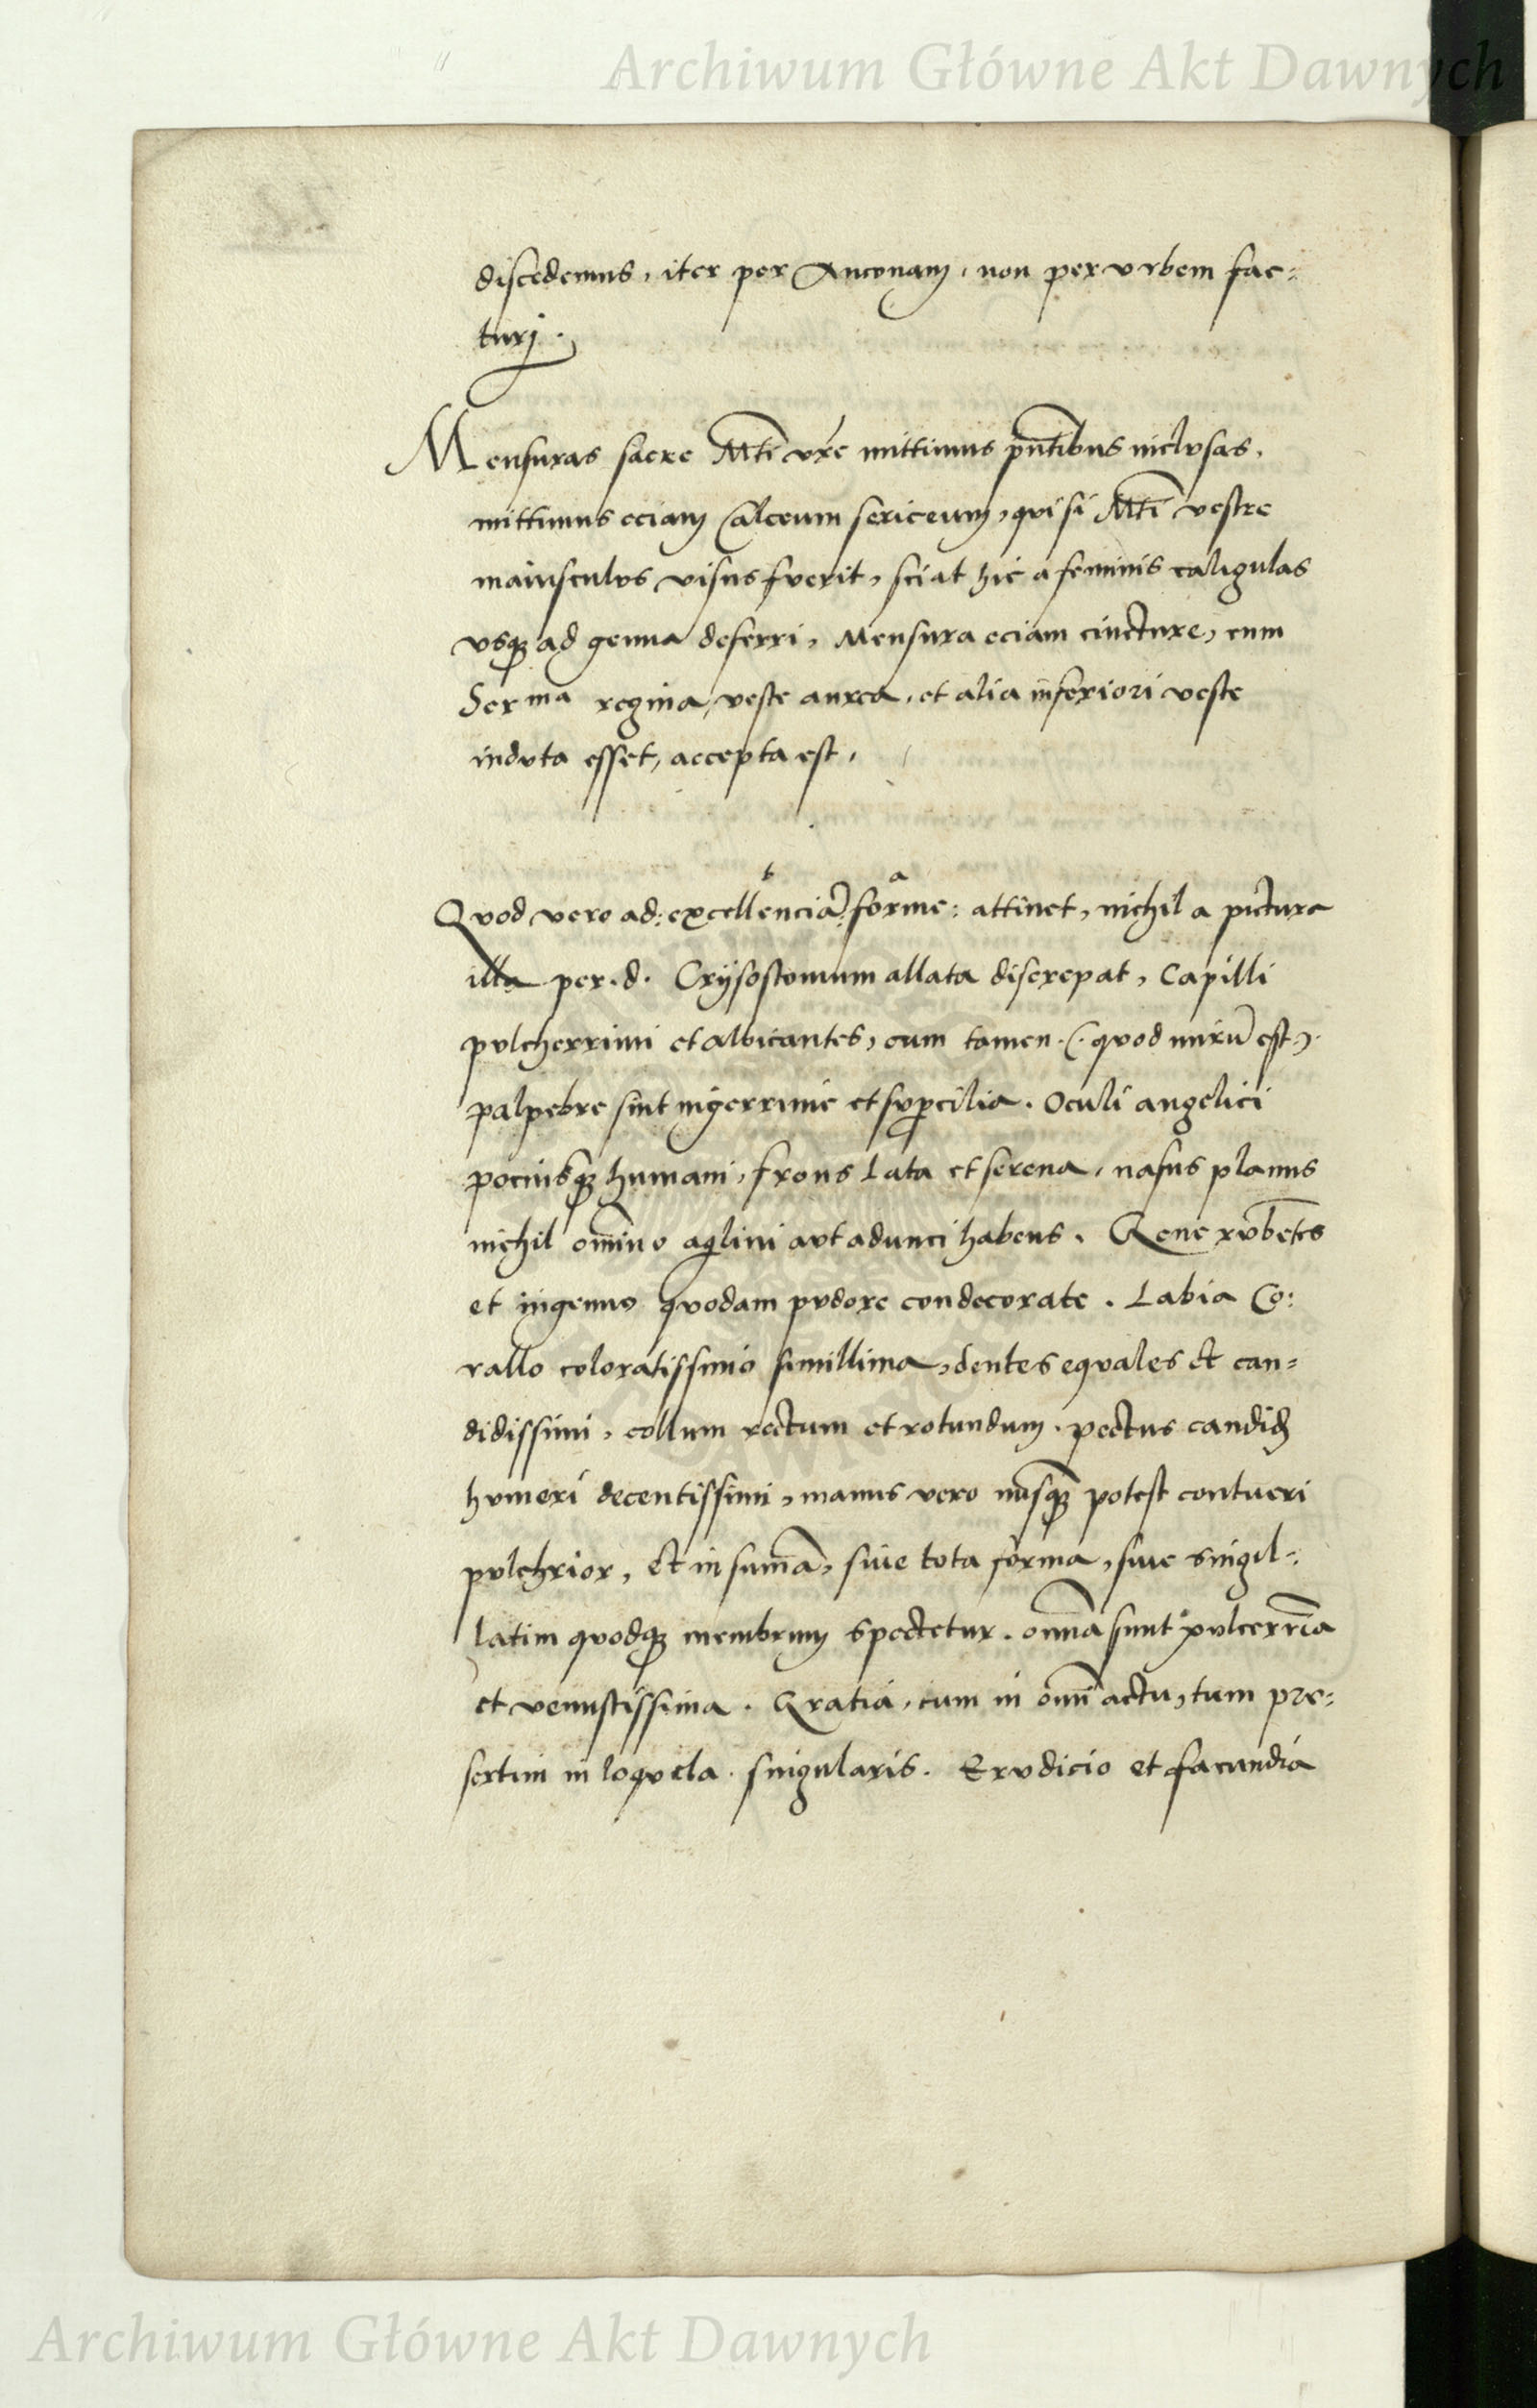 Archiwum Główne Akt Dawnych
discedemus, iter per Anconam, non per urbem fac=
turj.
Mensuras sacre Mti vre mittimus pntibus inclusas.
mittimus eciam Calceum sericeum, qui si Mti vestre
maiusculus visus fuerit, sciat hic a feminis caligulas
usq ad genua deferri, Mensura eciam cincture, cum
Serma regina, veste aurea, et alia inferiori veste
induta esset, accepta est,
b a
Quod vero ad: excellenciā: forme: attinet, nichil a pictura
illa per .d. Crÿsostomum allata discrepat, Capilli
pulcherrimi et albicantes, cum tamen .(. quod mirū est.).
palpebre sint nigerrime et supcilia. Oculi angelici
pociusq humani, frons lata et serena, nasus planus
nichil omīno aqlini aut adunci habens. Gene rubētes
et ingenuo quodam pudore condecorate. Labia Co:
rallo coloratissimo simillima, dentes equales et can=
didissimi, collum rectum et rotundum. pectus candid
humeri decentissimi, manus vero nusq potest contueri
pulchrior, Et in sumā, sive tota forma, sive singil=
latim quodq membrum spectetur. omnia sunt pulcerria
et venustissima. Gratia, cum in omni actu, tum pre:
sertim in loquela. singularis. Erudicio et facundia
Archiwum Główne Akt Dawnych